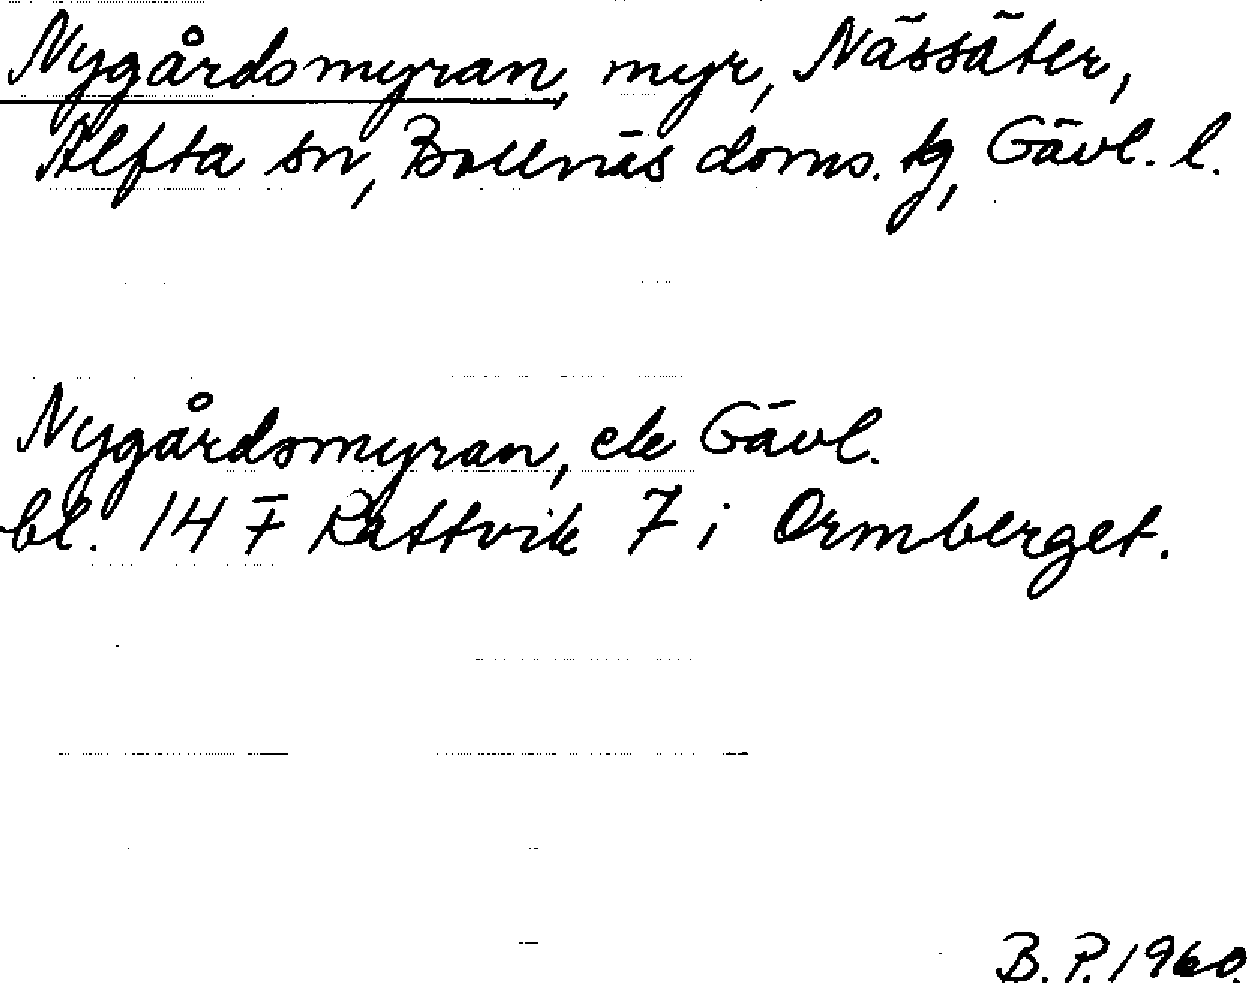 Nygårdsmyran, myr, Nässäter,
Alfta sn, Bollnäs doms. tg, Gävl. l.
Nygårdsmyran, ek Gävl.
bl. 14 F Rättvik 7 i Ormberget.
B. P. 1960.